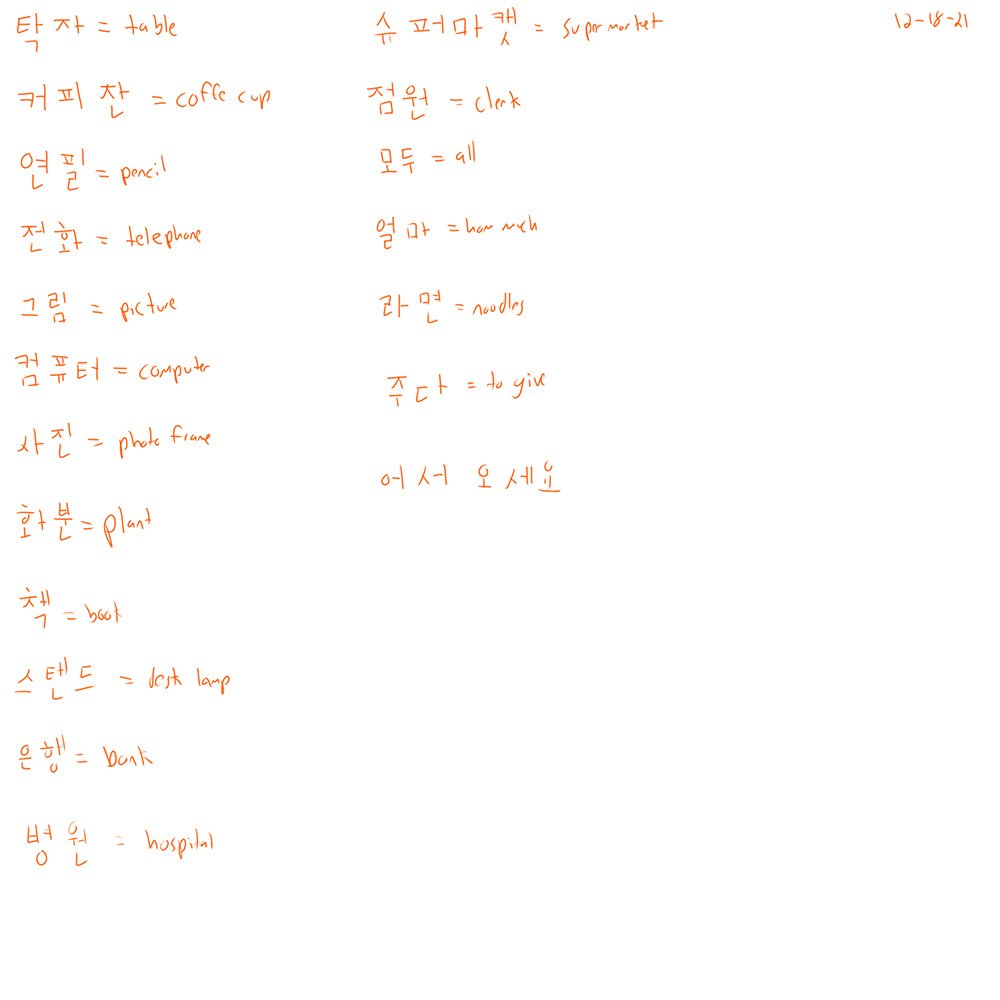 탁자 = table
커피 잔 = coffe cup
연필 = pencil
전화 = telephone
그림 = picture
컴퓨터 = computer
사진 = photo frame
화분 = plant
책 = book
스텐드 = desk lamp
은행 = bank
병원 = hospital
슈퍼마캣 = supermarket
점원 = clerk
모두 = all
얼마 = how much
라면 = noodles
주다 = to give
어서 오세요
12-18-21